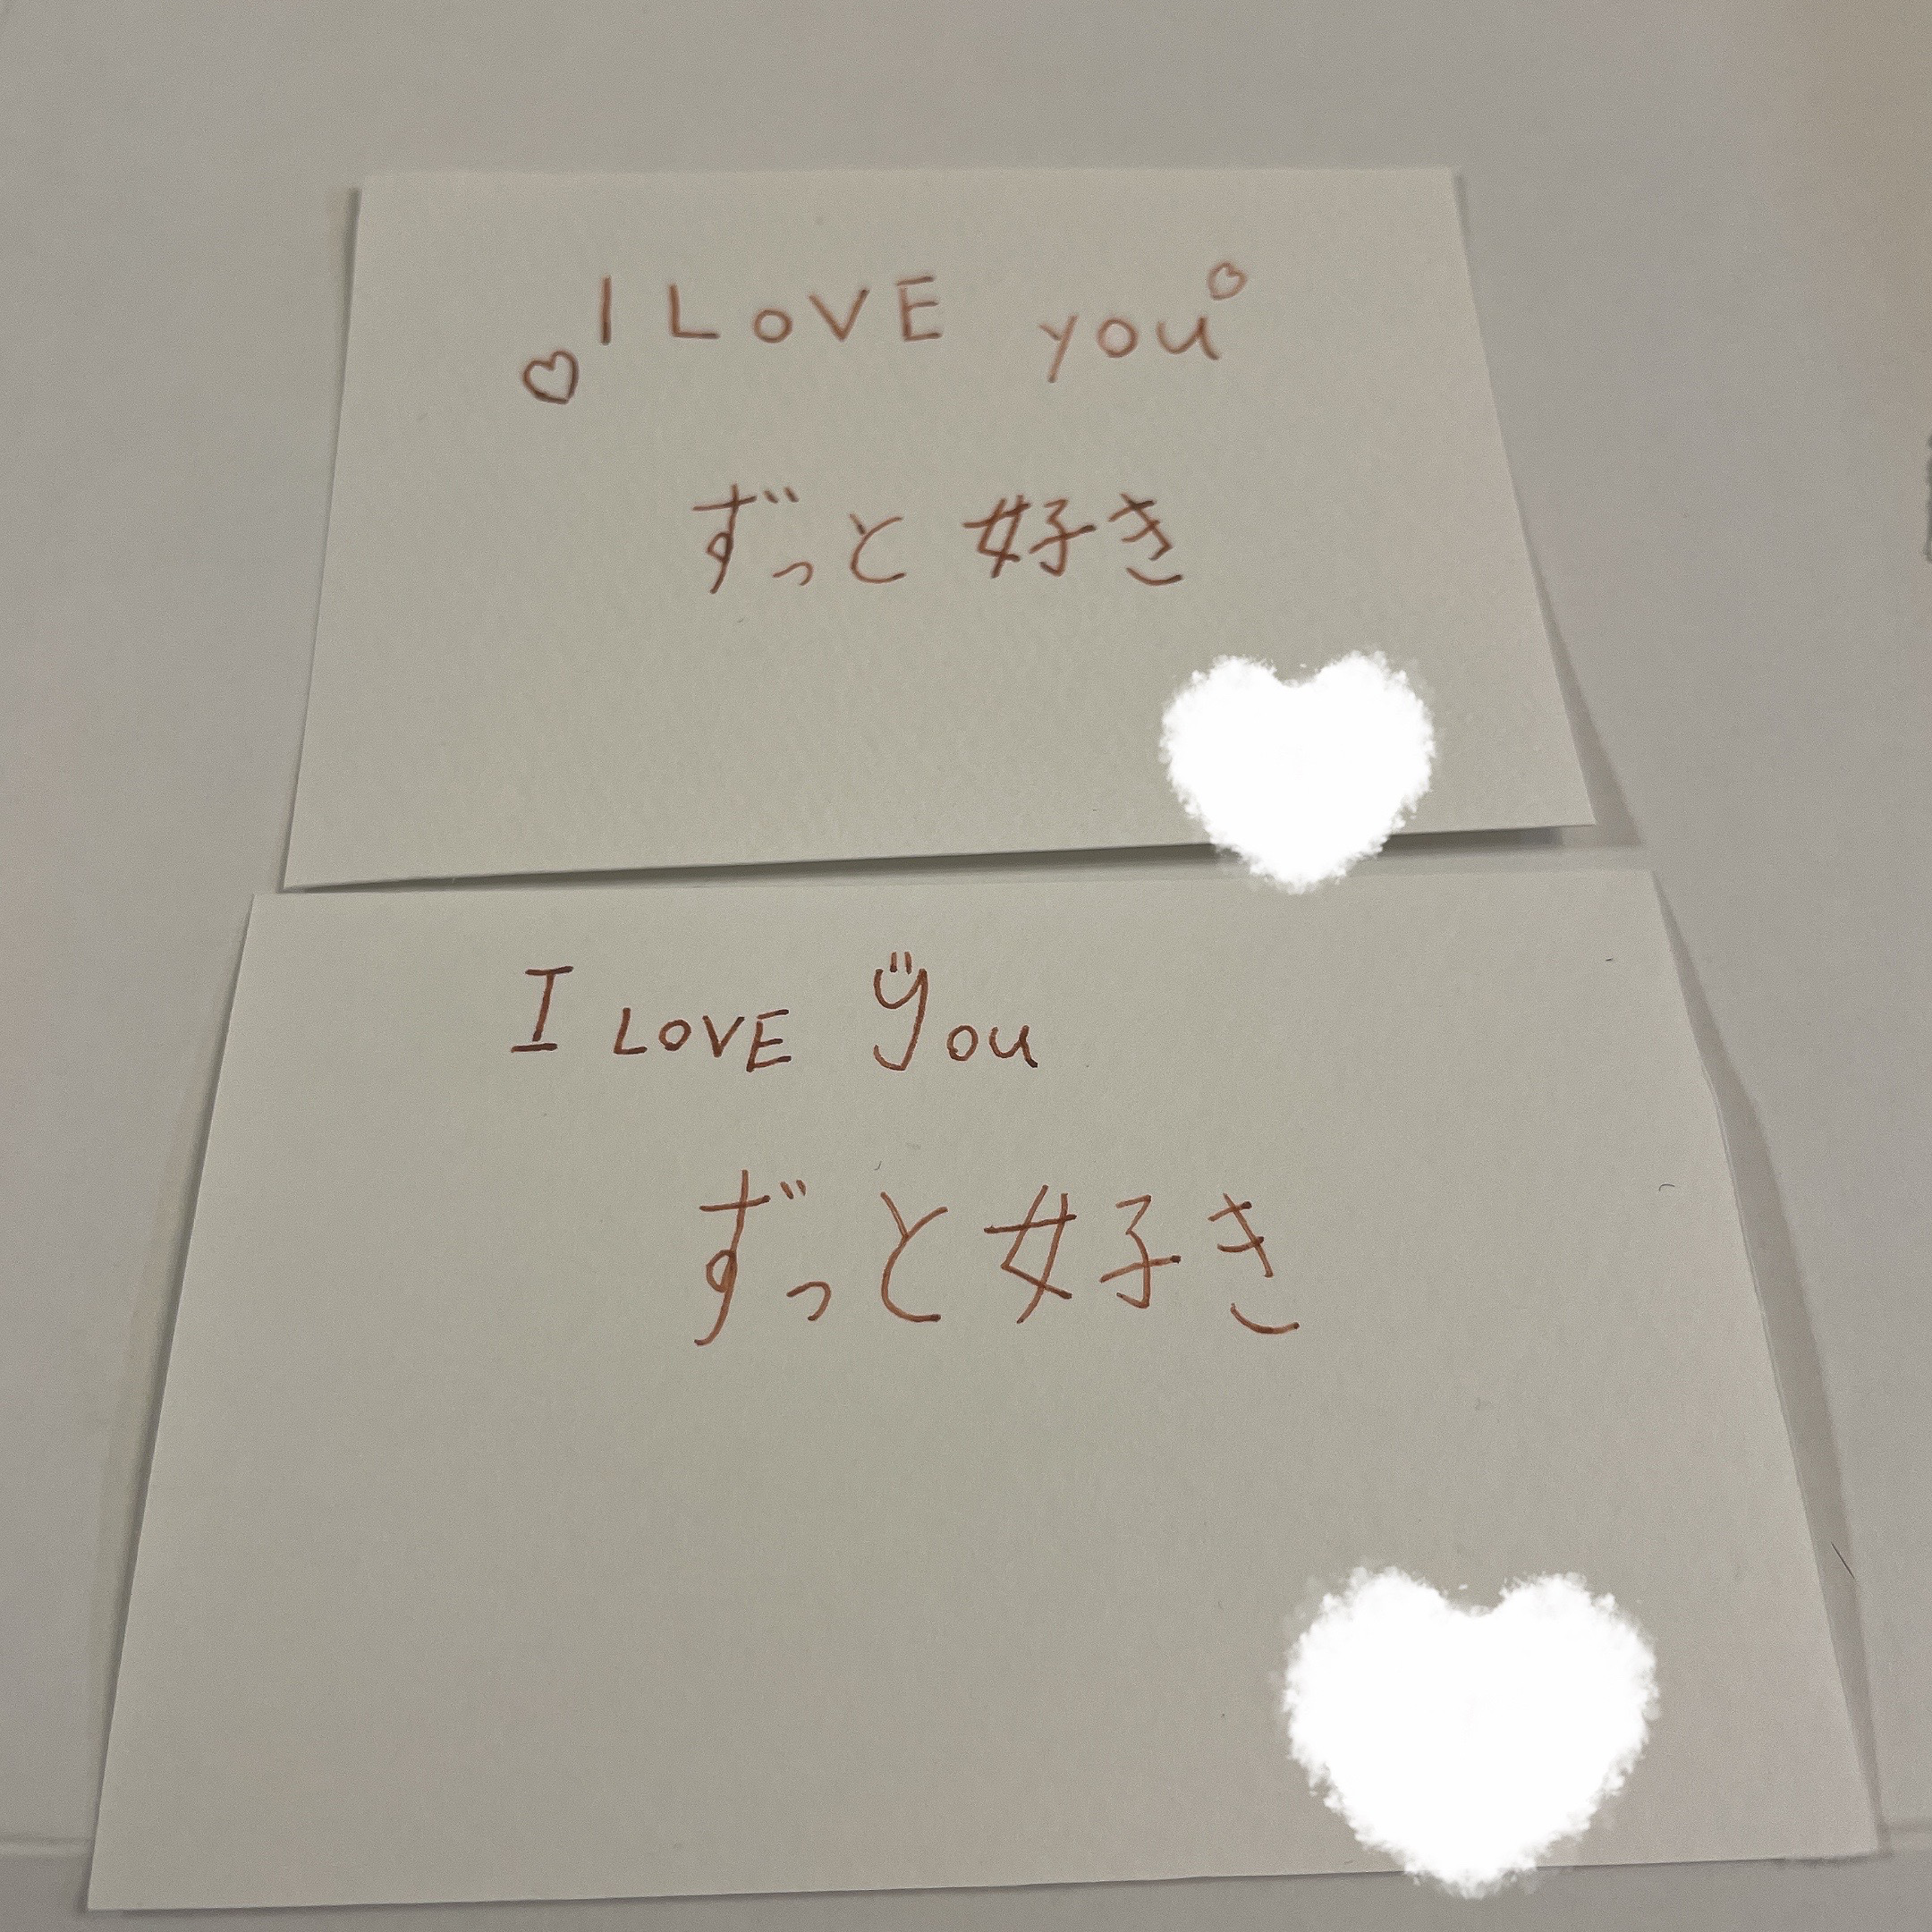 I LOVE you
ずっと好き
I LOVE You
ずっと好き